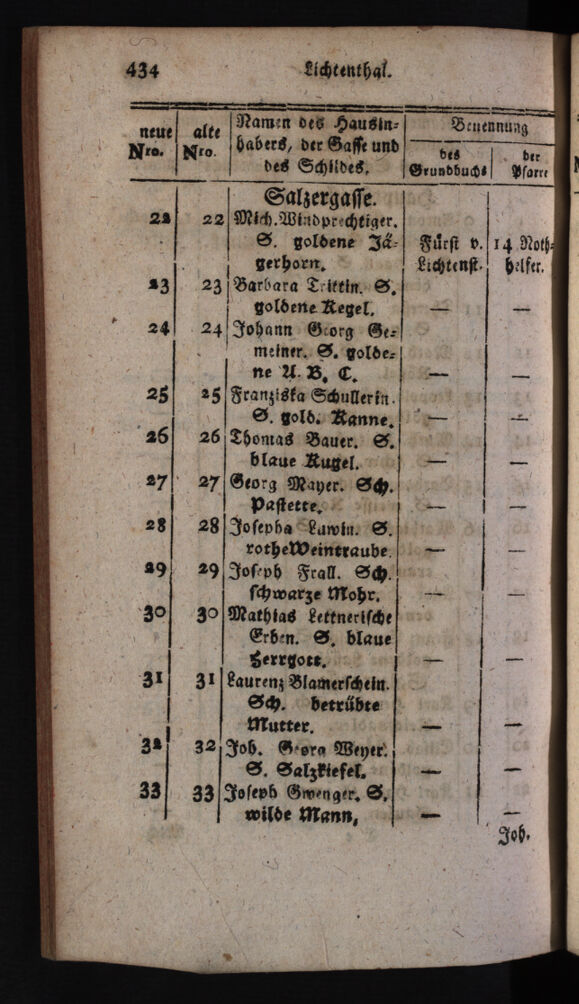 434 Lichtenthal.
neue Nro. | alte Nro. | Namen des Hausin=
habers, der Gasse und
des Schildes. | Benennung
des Grundbuchs | der Pfarre
Salzergasse.
22 22 Mich. Windprechtiger.
S. goldene Jä= Fürst v. 14 Noth=
gerhorn. Lichtenst. helfer.
23 23 Barbara Trittin. S.
goldene Kegel. — —
24 24 Johann Georg Ge=
meiner. S. golde=
ne A. B. C. — —
25 25 Franziska Schullerin.
S. gold. Kanne. — —
26 26 Thomas Bauer. S.
blaue Kugel. — —
27 27 Georg Mayer. Sch.
Pastette. — —
28 28 Josepha Lawin. S.
rothe Weintraube. — —
29 29 Joseph Frall. Sch.
schwarze Mohr. — —
30 30 Mathias Lettnerische
Erben. S. blaue
Herrgott. — —
31 31 Laurenz Blamerschein.
Sch. betrübte
Mutter. — —
32 32 Joh. Georg Weyer.
S. Salzkiefel. — —
33 33 Joseph Gwenger. S.
wilde Mann, — —
Joh.